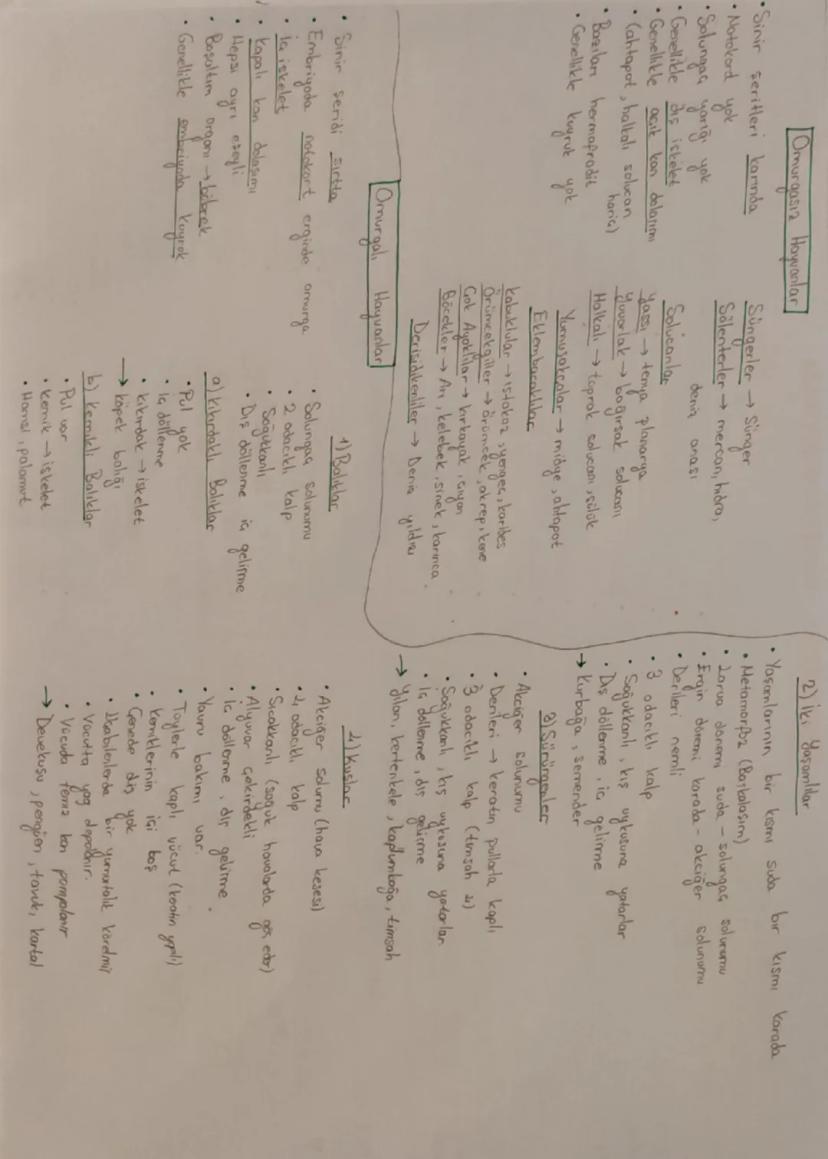 Omurgasız Hayvanlar
• Sinir şeritleri karında
• Notokord yok
• Solungaç yarığı yok
• Genellikle dış iskelet
• Genellikle açık kan dolaşımı
• (ahtapot, halkalı solucan hariç)
• Bazıları hermafrodit
• Genellikle kuyruk yok
Süngerler → Sünger
Sölenterler → mercan, hidra,
deniz anası
Solucanlar
Yassı → tenya planarya
Yuvarlak → bağırsak solucanı
Halkalı → toprak solucanı, sülük
Yumuşakçalar → midye, ahtapot
Eklembacaklılar
Kabuklular → istakoz, yengeç, karides
Örümcekgiller → örümcek, akrep, kene
Çok Ayaklılar → kırkayak, çıyan
Böcekler → Arı, kelebek, sinek, karınca
Derisidikenliler → Deniz yıldızı
Omurgalı Hayvanlar
• Sinir şeridi sırtta
• Embriyoda notokort erginde omurga
• İç iskelet
• Kapalı kan dolaşımı
• Hepsi ayrı eşeyli
• Boşaltım organı → böbrek
• Genellikle embriyoda kuyruk
1) Balıklar
• Solungaç solunumu
• 2 odacıklı kalp
• Soğukkanlı
• Dış döllenme iç gelişme
a) Kıkırdaklı Balıklar
• Pul yok
• iç döllenme
• kıkırdak → iskelet
→ köpek balığı
b) Kemikli Balıklar
• Pul var
• kemik → iskelet
• Hamsi, palamut
2) İki Yaşamlılar
• Yaşamlarının bir kısmı suda bir kısmı karada
• Metamorfoz (Başkalaşım)
• Larva dönemi suda - solungaç solunumu
• Ergin dönemi karada - akciğer solunumu
• Derileri nemli
• 3 odacıklı kalp
• Soğukkanlı, kış uykusuna yatarlar
• Dış döllenme, iç gelişme
→ kurbağa, semender
3) Sürüngenler
• Akciğer solunumu
• Derileri → keratin pullarla kaplı
• 3 odacıklı kalp (timsah 4)
• Soğukkanlı, kış uykusuna yatarlar
• İç döllenme, dış gelişme
→ Yılan, kertenkele, kaplumbağa, timsah
4) Kuşlar
• Akciğer solunumu (hava kesesi)
• 4 odacıklı kalp
• Sıcakkanlı (soğuk havalarda göç eder)
• Alyuvar çekirdekli
• İç döllenme, dış gelişme
• Yavru bakımı var.
• Tüylerle kaplı vücut (keratin yapılı)
• kemiklerinin içi boş
• Genede diş yok
• yumurtalık körelmiş
• Vücutta yağ depolanır.
• Vücuda temiz kan pompalanır
→ Devekuşu, penguen, tavuk, kartal